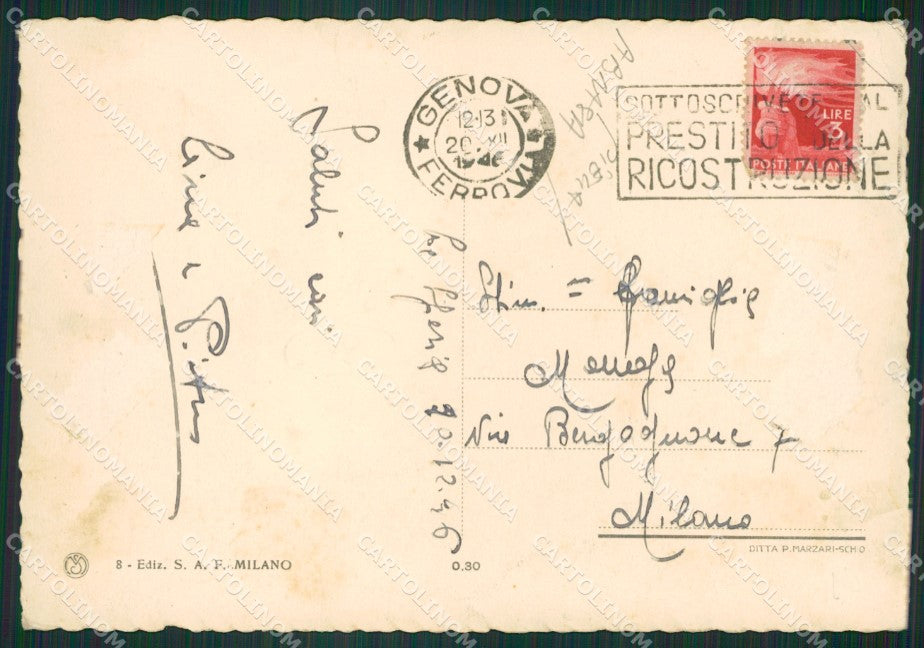 GENOVA
12-13
20. XII
1946
FERROVIA
SOTTOSCRIVETE AL
PRESTITO DELLA
RICOSTRUZIONE
LIRE
3
POSTE ITALIANE
Saluti cari
Lina e
20.12.46
Stim. = Famiglia
Via Bergognone 7
Milano
DITTA P. MARZARI-SCHIO
8 - Ediz. S. A. F. MILANO
0.30
CARTOLINOMANIA